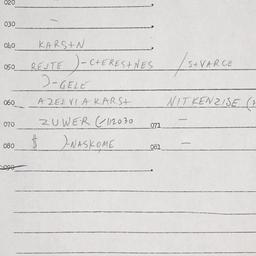 020
030 –
040 KARSTN
050 REJTE )-CTERESTNES / STVARCE
)-GELE
060 AZELVIAKARST NITKENZISE (
070 ZUWER 071 –
080 $ )-NASKOME 081 –
090